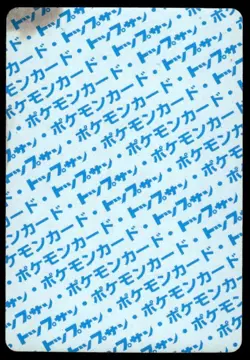 トップサン・ポケモンカード
ポケモンカード・トップサン・
トップサン・ポケモンカード・
・ポケモンカード・トップサン
トップサン・ポケモンカード・
ポケモンカード・トップサン・
トップサン・ポケモンカード・
ポケモンカード・トップサン・
・トップサン・ポケモンカード
ポケモンカード・トップサン・
・トップサン・ポケモンカード
ポケモンカード・トップサン
・ポケモンカード
トップサン